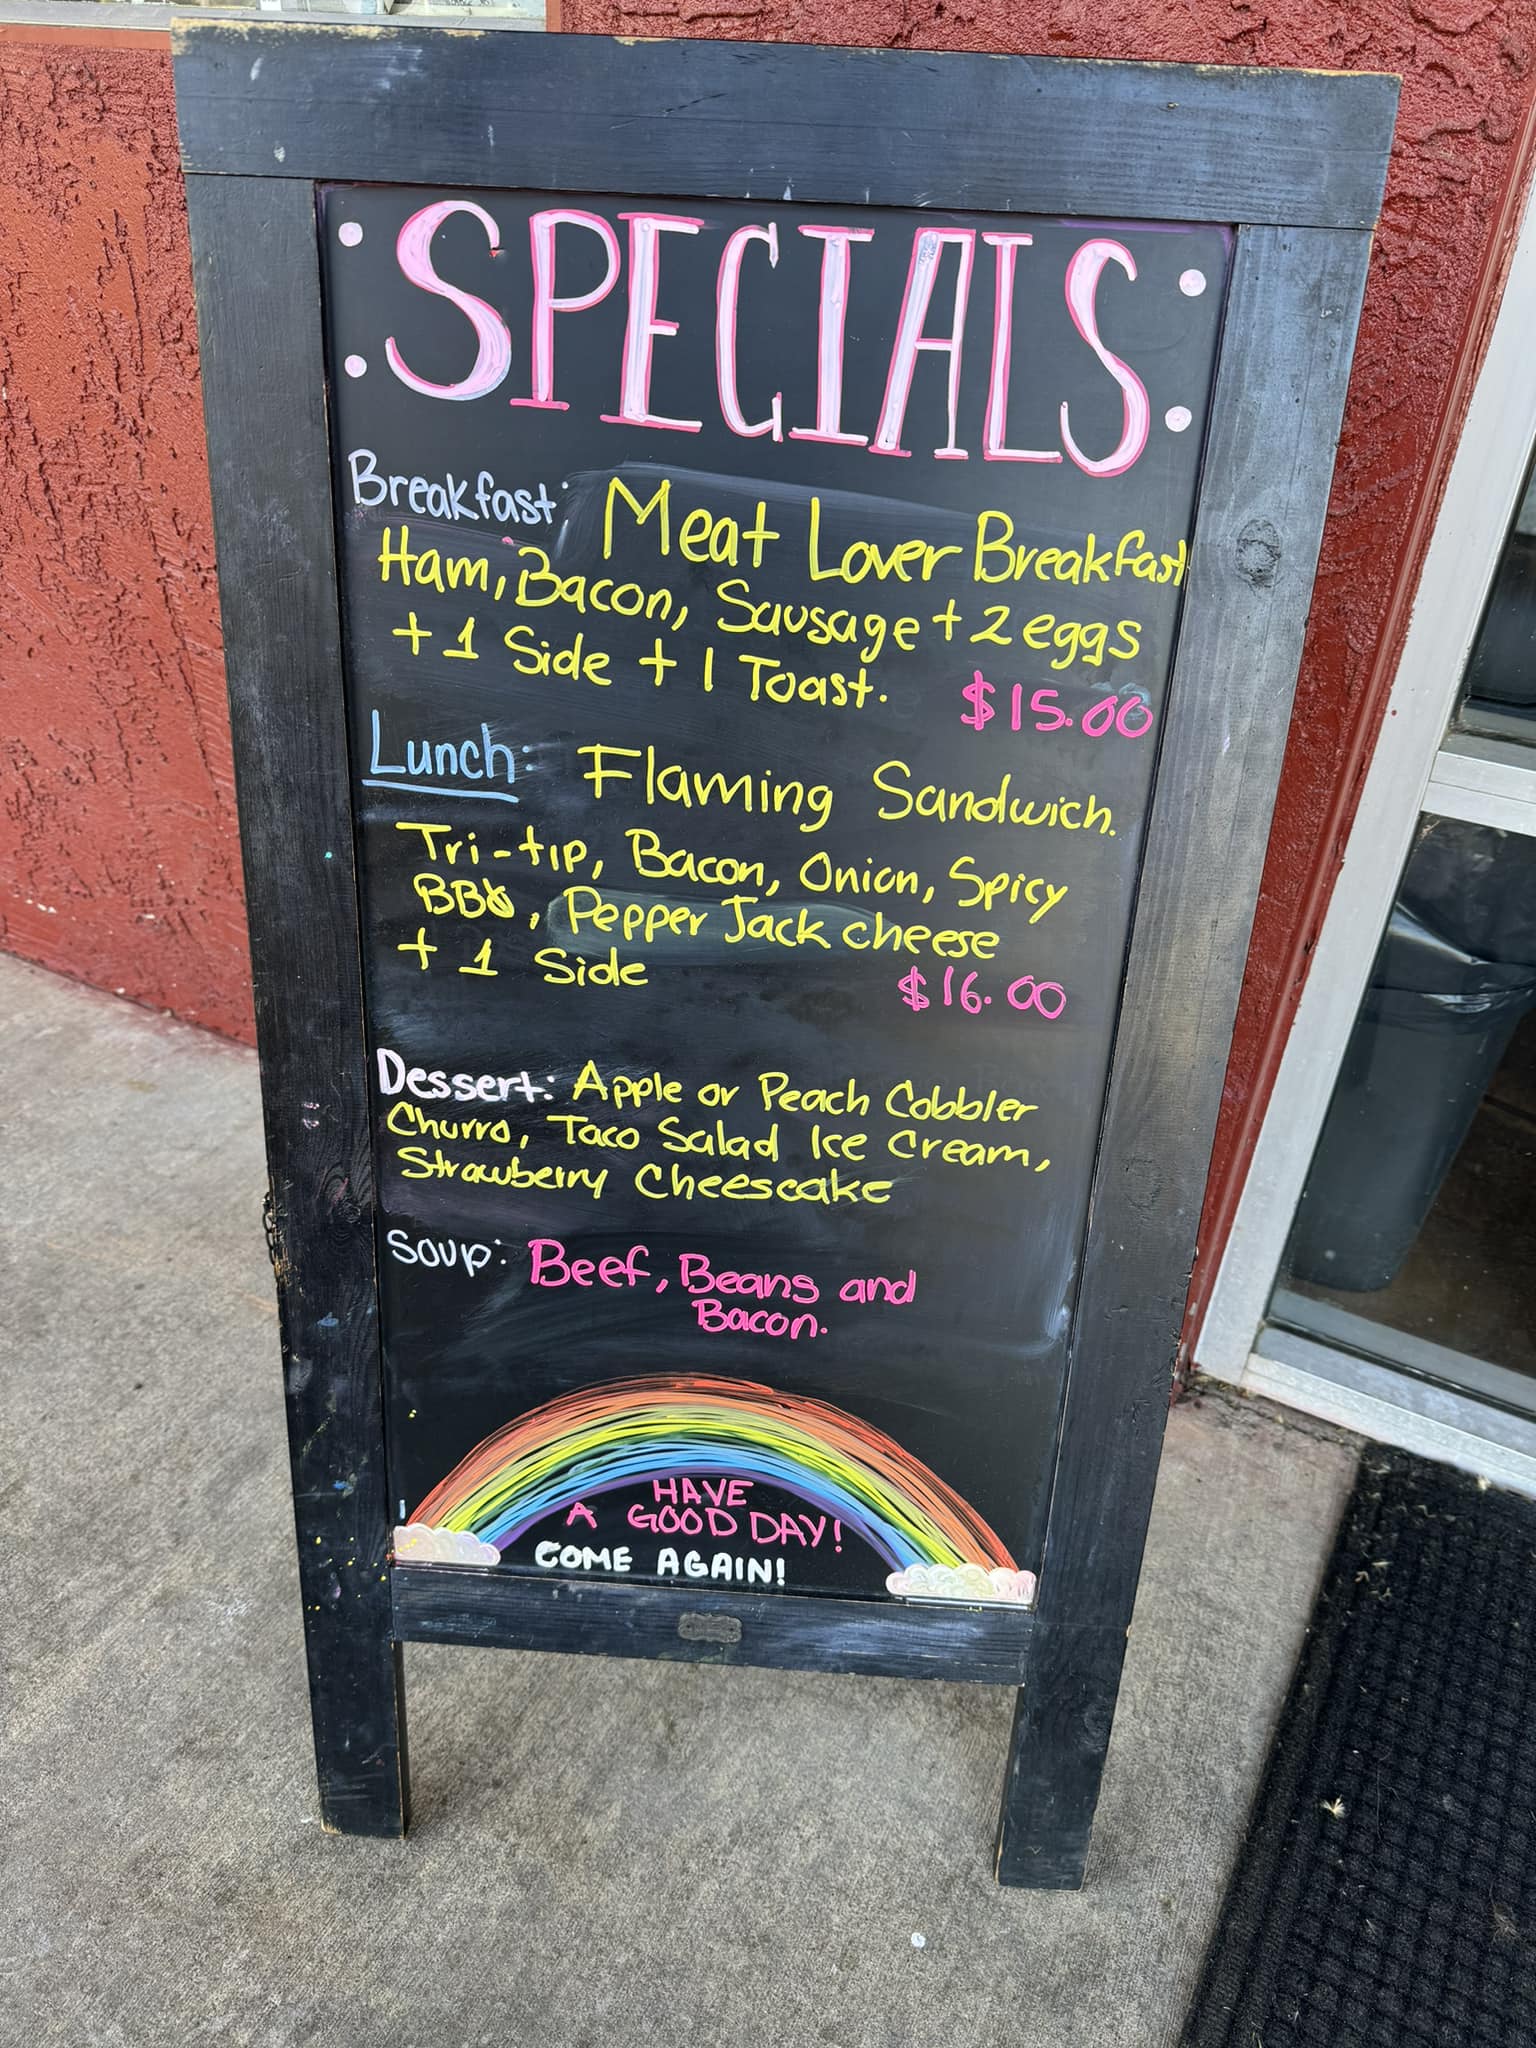 SPECIALS
Breakfast: Meat Lover Breakfast
Ham, Bacon, Sausage + 2 eggs
+ 1 Side + 1 Toast. $15.00
Lunch: Flaming Sandwich.
Tri-tip, Bacon, Onion, Spicy
BBQ, Pepper Jack cheese
+ 1 Side $16.00
Dessert: Apple or Peach Cobbler
Churro, Taco Salad Ice Cream,
Strawberry Cheescake
Soup: Beef, Beans and
Bacon.
HAVE
A GOOD DAY!
COME AGAIN!